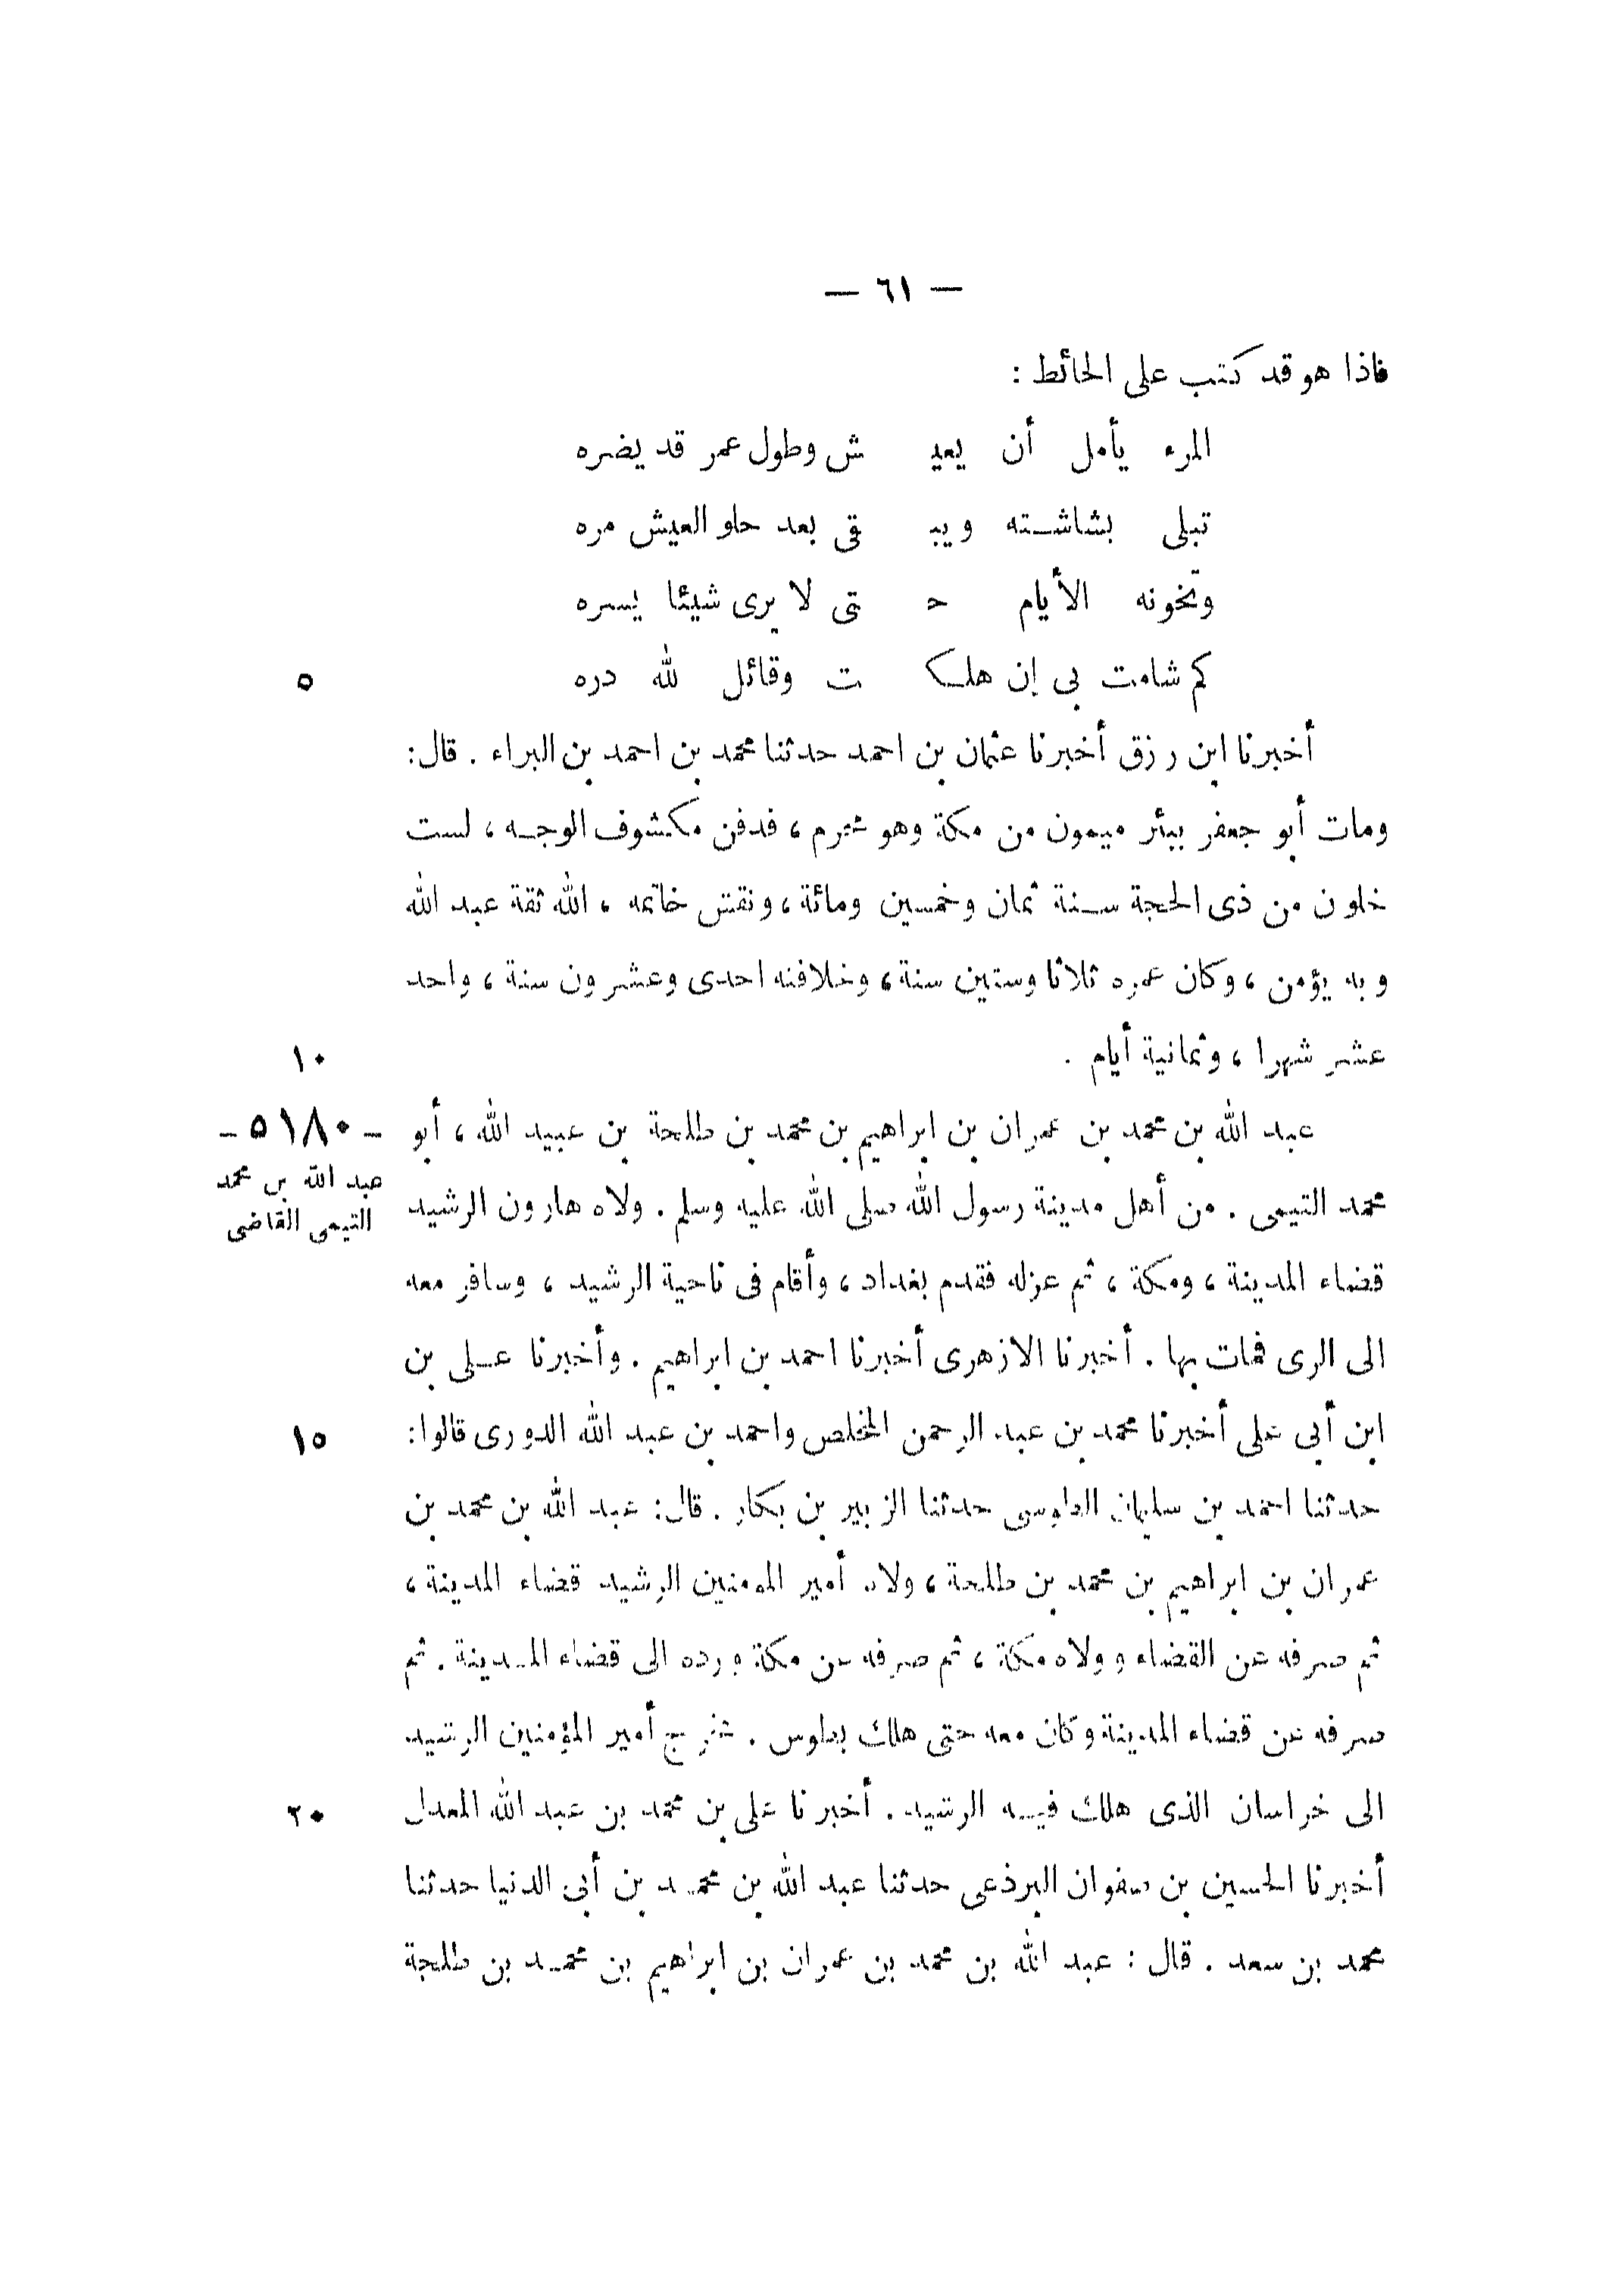 — ٦١ —
فاذا هو قد كتب على الحائط :
المرء يأمل أن يعيـ ـش وطول عمر قد يضره
تبلى بشاشـته ويبـ ـقى بعد حلو العيش مره
وتخونه الأيام حـ ـتى لا يرى شيئا يسره
كم شامت بى إن هلكـ ـت وقائل لله دره
٥
أخبرنا ابن رزق أخبرنا عثمان بن احمد حدثنا محمد بن احمد بن البراء . قال:
ومات أبو جعفر ببئر ميمون من مكة وهو محرم ، فدفن مكشوف الوجـه ، لست
خلون من ذى الحجة سـنة ثمان وخمسين ومائة ، ونقش خاتمه ، الله ثقة عبد الله
وبه يؤمن ، وكان عمره ثلاثا وستين سنة ، وخلافته احدى وعشرون سنة ، واحد
عشر شهرا ، وثمانية أيام .
١٠
عبد الله بن محمد بن عمران بن ابراهيم بن محمد بن طلحة بن عبيد الله ، أبو
ـ ٥١٨٠ ـ
عبد الله بن محمد
التيمى القاضى
محمد التيمى . من أهل مدينة رسول الله صلى الله عليه وسلم . ولاه هارون الرشيد
قضاء المدينة ، ومكة ، ثم عزله فقدم بغداد ، وأقام فى ناحية الرشيد ، وسافر معه
الى الرى فمات بها . أخبرنا الازهرى أخبرنا احمد بن ابراهيم . وأخبرنا عـلى بن
ابن أبى على أخبرنا محمد بن عبد الرحمن المخلص واحمد بن عبد الله الدورى قالوا:
١٥
حدثنا احمد بن سليمان الطوسى حدثنا الزبير بن بكار . قال: عبد الله بن محمد بن
عمران بن ابراهيم بن محمد بن طلحة ، ولاه أمير المؤمنين الرشيد قضاء المدينة ،
ثم صرفه عن القضاء وولاه مكة ، ثم صرفه عن مكة ورده الى قضاء المـدينة . ثم
صرفه عن قضاء المدينة وكان معه حتى هلك بطوس . مخرج أمير المؤمنين الرشيد
الى خراسان الذى هلك فيـه الرشيد . أخبرنا على بن محمد بن عبد الله المعدل
٢٠
أخبرنا الحسين بن صفوان البرذعى حدثنا عبد الله بن محمـد بن أبى الدنيا حدثنا
محمد بن سعد . قال : عبد الله بن محمد بن عمران بن ابراهيم بن محمـد بن طلحة